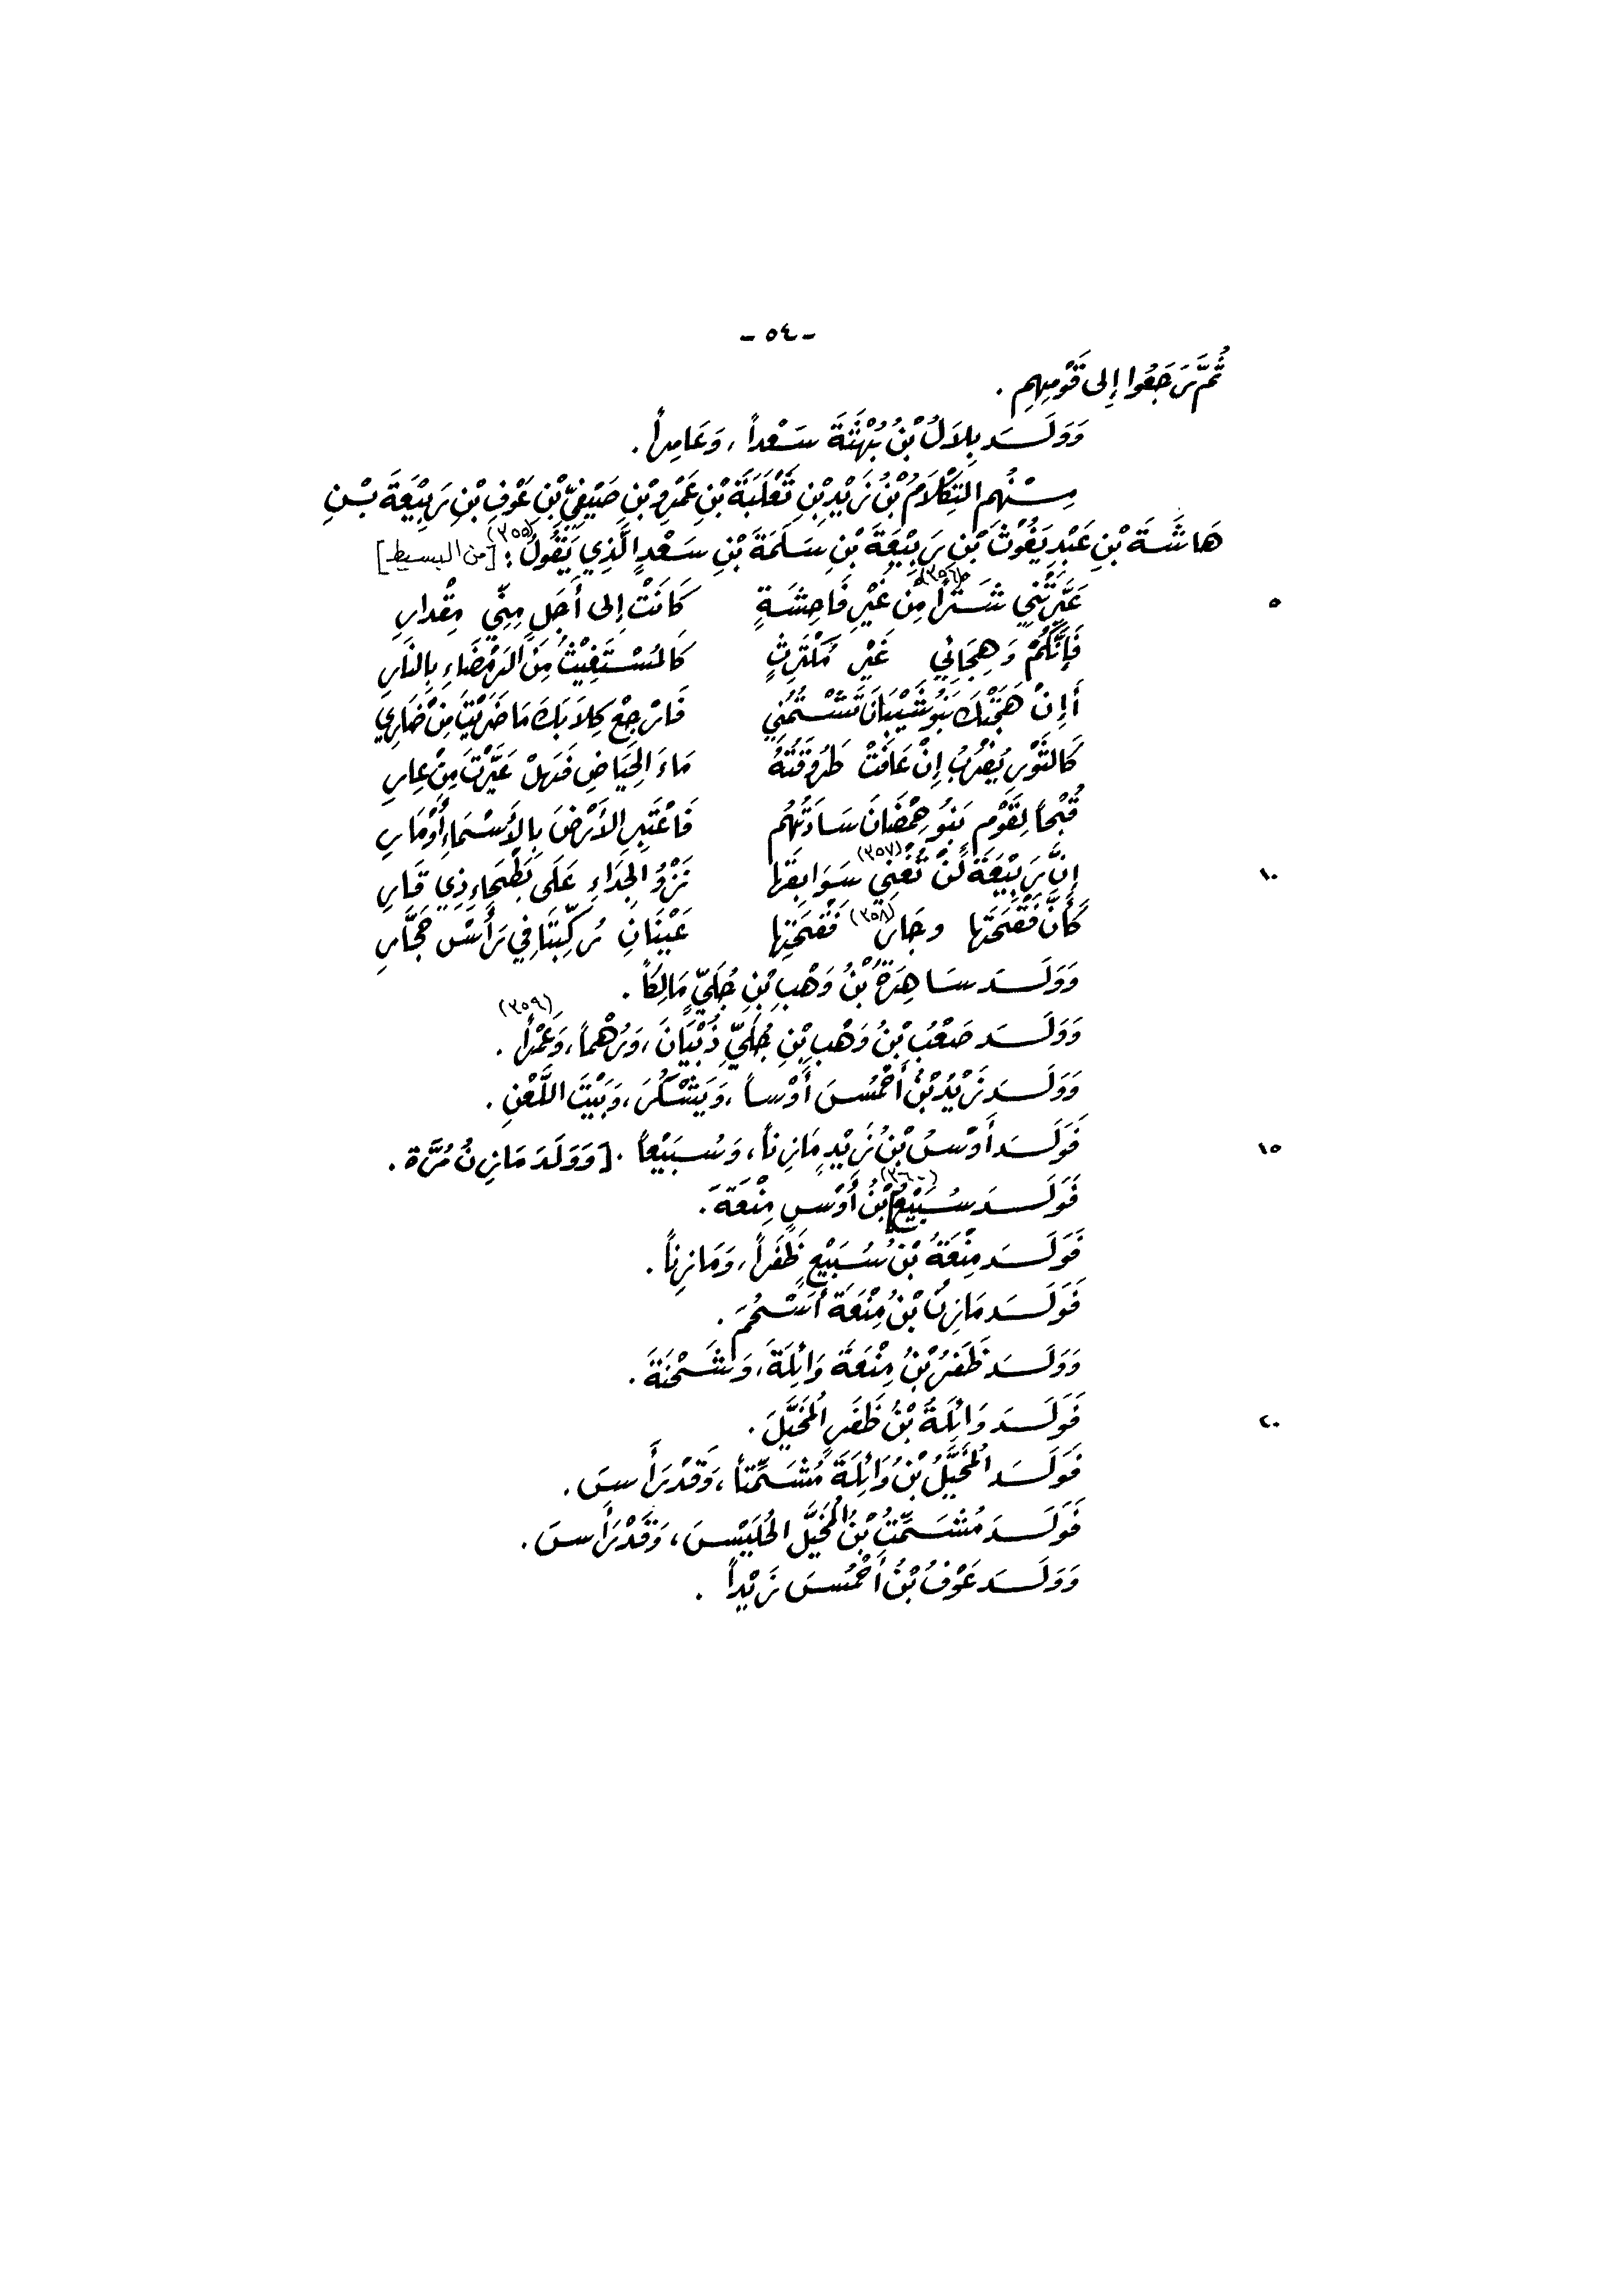 - ٥٤ -
ثُمَّ رَجَعُوا إِلى قَوْمِهِم .
وَوَلَــدَ بِلاَلُ بْنُ بُهْثَةَ سَعْداً ، وَعَامِراً .
مِــنْهُم المَتِكْلاَمُ بْنُ زَيْدِ بْنِ ثَعْلَبَةَ بْنِ عَمْرِو بْنِ صَيْفِيِّ بْنِ عَوْفِ بْنِ رَبِيْعَةَ بْــنِ
هَاشَــةَ بْنِ عَبْدِ يَغُوْثَ بْنِ رَبِيْعَةَ بْنِ سَلَمَةَ بْنِ سَعْدٍ الَّذِي يَقُولُ (٣٥٥) : [من البسيط]
عَيَّرْتَنِي شَــتَراً (٣٥٦) مِنْ غَيْرِ فَاحِشَــةٍ كَانَتْ إِلى أَجَلٍ مِنِّي مِقْدارِ ٥
فَإِنَّكُمْ وَهِجَائِي غَيْرَ مُكْتَرِثٍ كَالمُسْــتَغِيْثِ مِنَ الرَمْضَاءِ بِالنَارِ
أَإِنْ هَجَتْكَ بَنُو شَيْبَانَ تَشْــتُمُنِي فَارْجِعْ كِلاَبَكَ مَا ضَرَيْتَ مِنْ ضَارِي
كَالثَّوْرِ يُضْرَبُ إِنْ عَافَتْ طَرُوقَتُهُ مَاءَ الحِيَاضِ فَهَلْ عَيَّرْتَ مِنْ عَارِ
قُبْحاً لِقَوْمٍ بَنُو هِمْضَانَ سَادَتُهُم فَاعْتَبِرِ الأَرْضَ بِالأَسْمَاءِ أَوْمَارِ
إِنَّ رَبِيْعَةَ لَنْ تُغْنِي (٣٥٧) سَوَابِقَهَا نَزْوُ الجِدَاءِ عَلَى بَطْحَاءِ ذِي قَارِ ١٠
كَأَنَّ فَقْحَتَهَا وجَارُ (٣٥٨) فَقْحَتِهَا عَيْنَانِ رُكِّبَتَا فِي رَأْسِ حَجَّارِ
وَوَلَــدَ سَاهِرَةُ بْنُ وَهْبِ بْنِ جُلَيٍّ مَالِكاً .
وَوَلَــدَ صَعْبُ بْنُ وَهْبِ بْنِ جُلَيِّ ذُبْيَانَ ، وَرُهْماً ، وَعَمْراً (٣٥٩) .
وَوَلَــدَ زَيْدُ بْنُ أَحْمُسَ أَوْساً ، وَيَشْكُرَ ، وَبَيْتَ اللَّعْنِ .
فَوَلَــدَ أَوْسُ بْنُ زَيْدٍ مَازِناً ، وَسُبَيْعاً . [وَوَلَدَ مَازِنُ مُرَّة . ١٥
فَوَلَــدَ سُبَيْعُ] (٣٦٠) بْنُ أَوْسٍ مِنْعَةَ .
فَوَلَــدَ مِنْعَةُ بْنُ سُبَيْعٍ ظَفَراً ، وَمَازِناً .
فَوَلَــدَ مَازِنُ بْنُ مِنْعَةَ أَسْــحُمَ .
وَوَلَــدَ ظَفَرُ بْنُ مِنْعَةَ وَائِلَةَ ، وَشَــحْنَةَ .
فَوَلَــدَ وَائِلَةُ بْنُ ظَفَرٍ المُخَيَّلَ . ٢٠
فَوَلَــدَ المُخَيَّلُ بْنُ وَائِلَةَ مُشَــمِّتاً ، وَقَدْ رَأَسَ .
فَوَلَــدَ مُشَــمِّتُ بْنُ المُخَيَّلِ الحُلَيْسَ ، وَقَدْ رَأَسَ .
وَوَلَــدَ عَوْفُ بْنُ أَحْمُسَ زَيْداً .